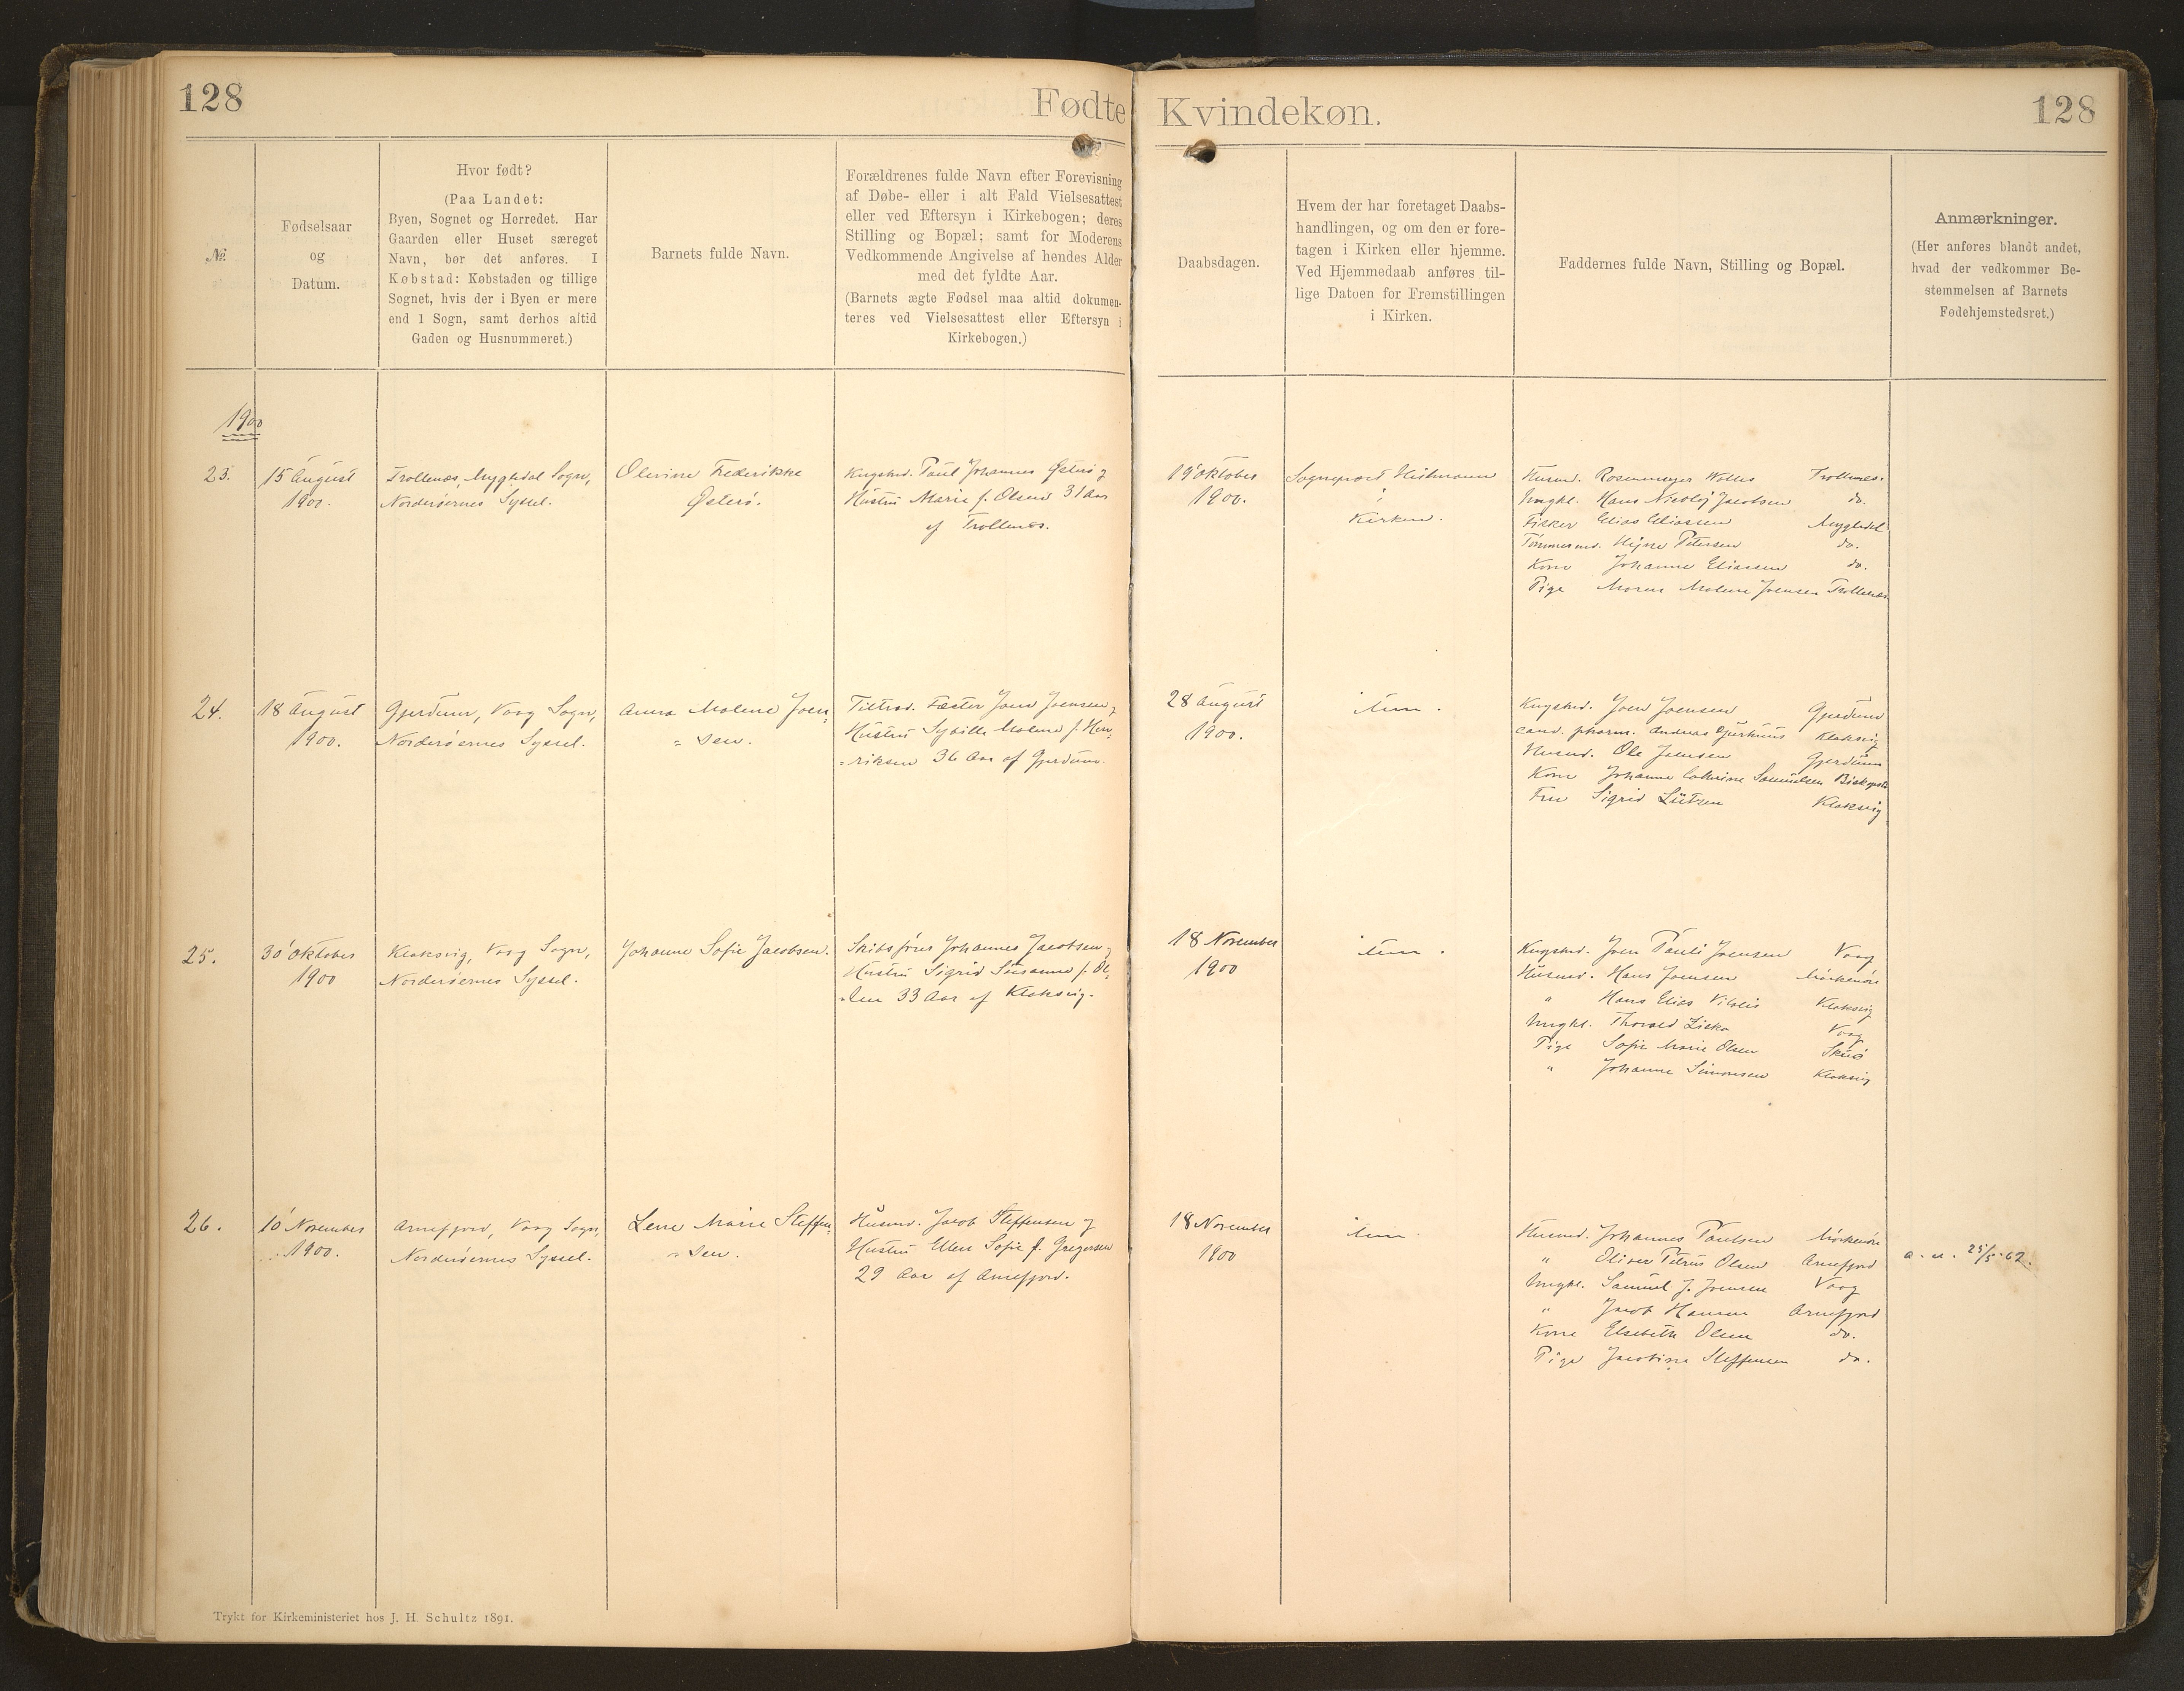 128
Fødte
Kvindekøn.
128
№
Fødselsaar
og
Datum.
Hvor født?
(Paa Landet:
Byen, Sognet og Herredet. Har
Gaarden eller Huset særeget
Navn, bør det anføres. I
Købstad: Købstaden og tillige
Sognet, hvis der i Byen er mere
end 1 Sogn, samt derhos altid
Gaden og Husnummeret.)
Barnets fulde Navn.
Forældrenes fulde Navn efter Forevisning
af Døbe- eller i alt Fald Vielsesattest
eller ved Eftersyn i Kirkebogen; deres
Stilling og Bopæl; samt for Moderens
Vedkommende Angivelse af hendes Alder
med det fyldte Aar.
(Barnets ægte Fødsel maa altid dokumen-
teres ved Vielsesattest eller Eftersyn i
Kirkebogen.)
Daabsdagen.
Hvem der har foretaget Daabs-
handlingen, og om den er fore-
tagen i Kirken eller hjemme.
Ved Hjemmedaab anføres til-
lige Datoen for Fremstillingen
i Kirken.
Faddernes fulde Navn, Stilling og Bopæl.
Anmærkninger.
(Her anføres blandt andet,
hvad der vedkommer Be-
stemmelsen af Barnets
Fødehjemstedsret.)
1900
23.
15 August
1900.
Trollenæs, Mygledal Sogn,
Norderøernes Syssel.
Olevine Frederikke
Østerø.
Kngsbd. Poul Johannes Østerø og
Hustru Marie f. Olsen 31 Aar
af Trollenæs.
19 Oktober
1900.
Sognepræst
i
Kirken.
Husmd. Rosenmeyer Trollenæs.
Ungkl. Hans Nicolaj Jacobsen do.
Fisker Elias Eliassen Mygledal
Tømmermd. Petersen do.
Kone Johanne Eliassen do.
Pige Maren Malene Joensen Trollenæs
24.
18 August
1900.
Gjerdum, Vaag Sogn,
Norderøernes Syssel.
Anna Malene Joen-
=sen.
Tiltræd. Fæster Joen Joensen og
Hustru Sybille Malene f. Hen-
=riksen 36 Aar af Gjerdum.
28 August
1900.
item.
Kngsbd. Joen Joensen Gjerdum
cand. pharm. Andreas Djurhuus Klaksvig
Husmd. Ole Joensen Gjerdum
Kone Johanne Cathrine Samuelsen
Fru Sigrid Lützen Klaksvig
25.
30 Oktober
1900
Klaksvig, Vaag Sogn,
Norderøernes Syssel.
Johanne Sofie Jacobsen.
Skibsfører Johannes Jacobsen og
Hustru Sigrid Susanne f. Ol-
=sen 33 Aar af Klaksvig.
18 November
1900
item.
Kngsbd. Joen Pauli Joensen Vaag
Husmd. Hans Joensen Mörkenöre
" Hans Elias Klaksvig
Ungkl. Thorvald Ziska Vaag
Pige Sofie Marie Olsen Skuö
" Johanne Simonsen Klaksvig
26.
10 November
1900.
Arnefjord, Vaag Sogn,
Norderøernes Syssel.
Lene Marie Steffen-
=sen.
Husmd. Jacob Steffensen og
Hustru Ellen Sofie f. Gregersen
29 Aar af Arnefjord.
18 November
1900
item.
Husmd. Johannes Poulsen Mörkenöre
" Oliver Petrus Olsen Arnefjord
Ungkl. Samuel J. Joensen Vaag
" Jacob Hansen Arnefjord
Kone Elsebeth Olsen do.
Pige Jacobine Steffensen do.
a. u. 25/5 62.
Trykt for Kirkeministeriet hos J. H. Schultz 1891.